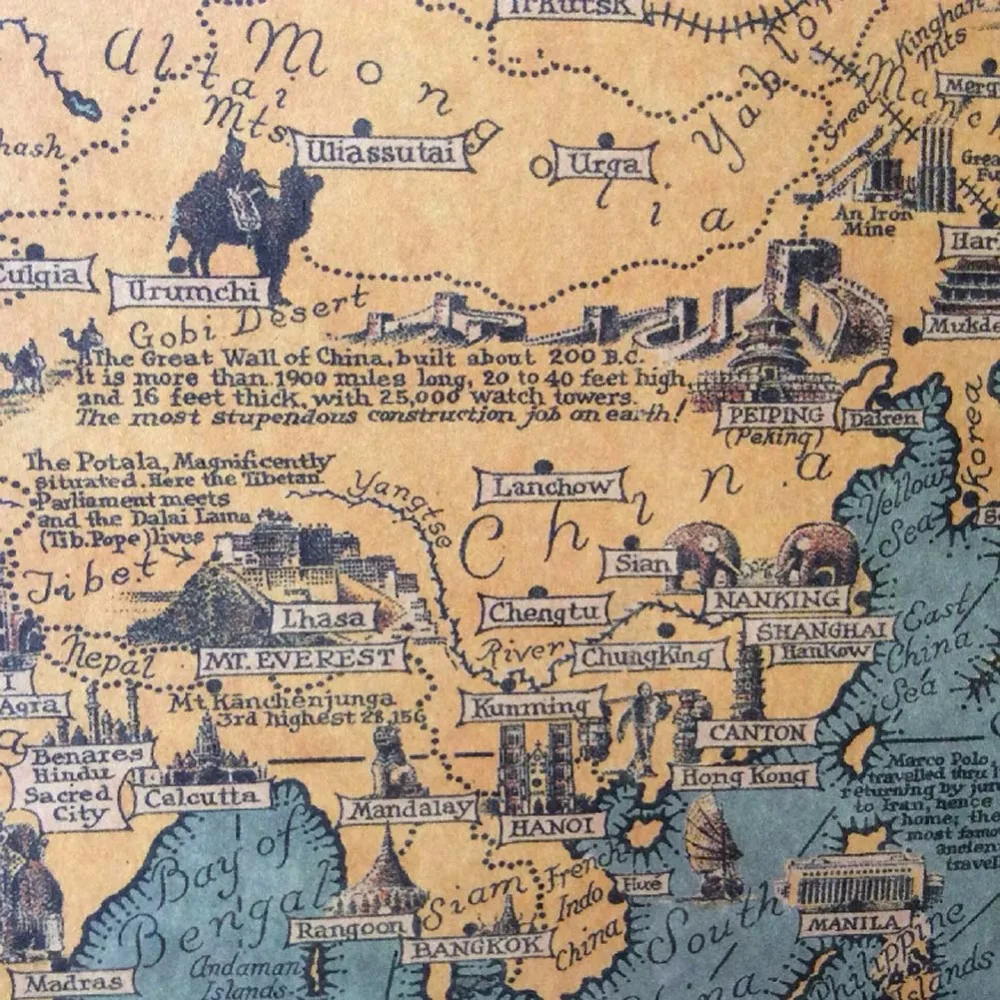 Irkutsk
Altai
Mts.
Mongolia
Yablo
Kinghan
Mts
Great
Manch
Merg
hash
Uliassutai
Urga
An Iron
Mine
Grea
Fu
Culgia
Urumchi
Har
Mukde
Gobi Desert
The Great Wall of China, built about 200 B.C.
It is more than 1900 miles long, 20 to 40 feet high,
and 16 feet thick, with 25,000 watch towers.
The most stupendous construction job on earth!
PEIPING
(Peking)
Dairen
Korea
The Potala, Magnificently
situated. Here the Tibetan
Parliament meets
and the Dalai Lama
(Tib. Pope) lives
Yangtse
River
Lanchow
China
Yellow
Sea
Tibet
Lhasa
Sian
NANKING
Chengtu
SHANGHAI
Hankow
East
China
Sea
Nepal
MT. EVEREST
Chungking
Agra
Mt Kanchenjunga
3rd highest 28,156
Kunming
CANTON
Benares
Hindu
Sacred
City
Calcutta
Mandalay
HANOI
Hong Kong
Marco Polo,
travelled thru
returning by jun
to Iran, hence
home; the
most famo
ancien
travel
Bay of
Bengal
Rangoon
Siam
BANGKOK
French
Indo
China
Hue
South
MANILA
Philippine
Islands
Andaman
Islands
Madras